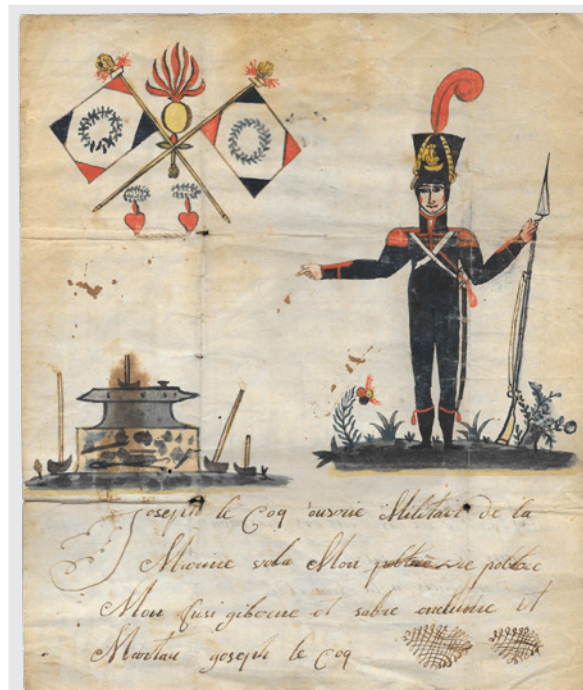 Joseph le Coq ouvrie Militaire de la
Marine vola Mon potraie
Mon fusi giberne et sabre enclume et
Martau goseph le coq